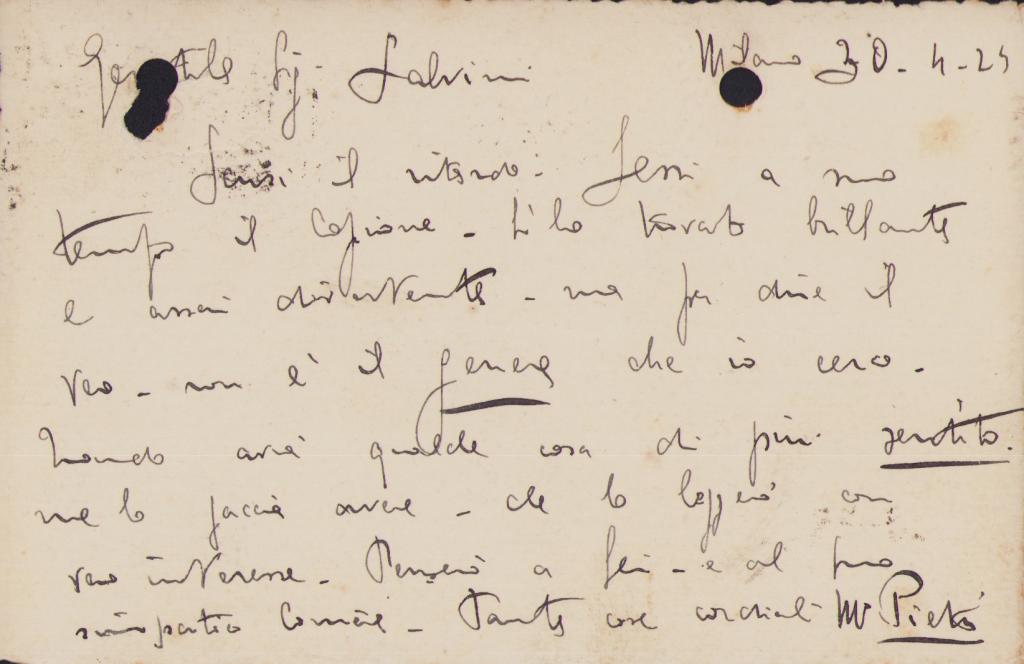 Gentile Sig. Salvini Milano 30-4-25
Scusi il ritardo. Lessi a suo
tempo il Copione - L'ho trovato brillante
e assai divertente - ma per dire il
vero - non è il genere che io cerco -
Quando avrà qualche cosa di più sentito.
me lo faccia avere - che lo leggerò con
vero interesse - Penserò a Lei - e al suo
simpatico - Tante cose cordiali